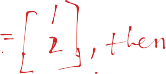 = [1
2], then